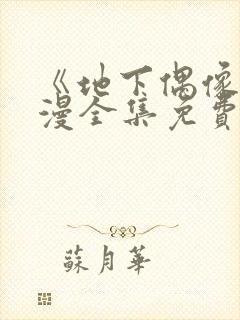 《地下偶像
漫全集免費
蘇月華